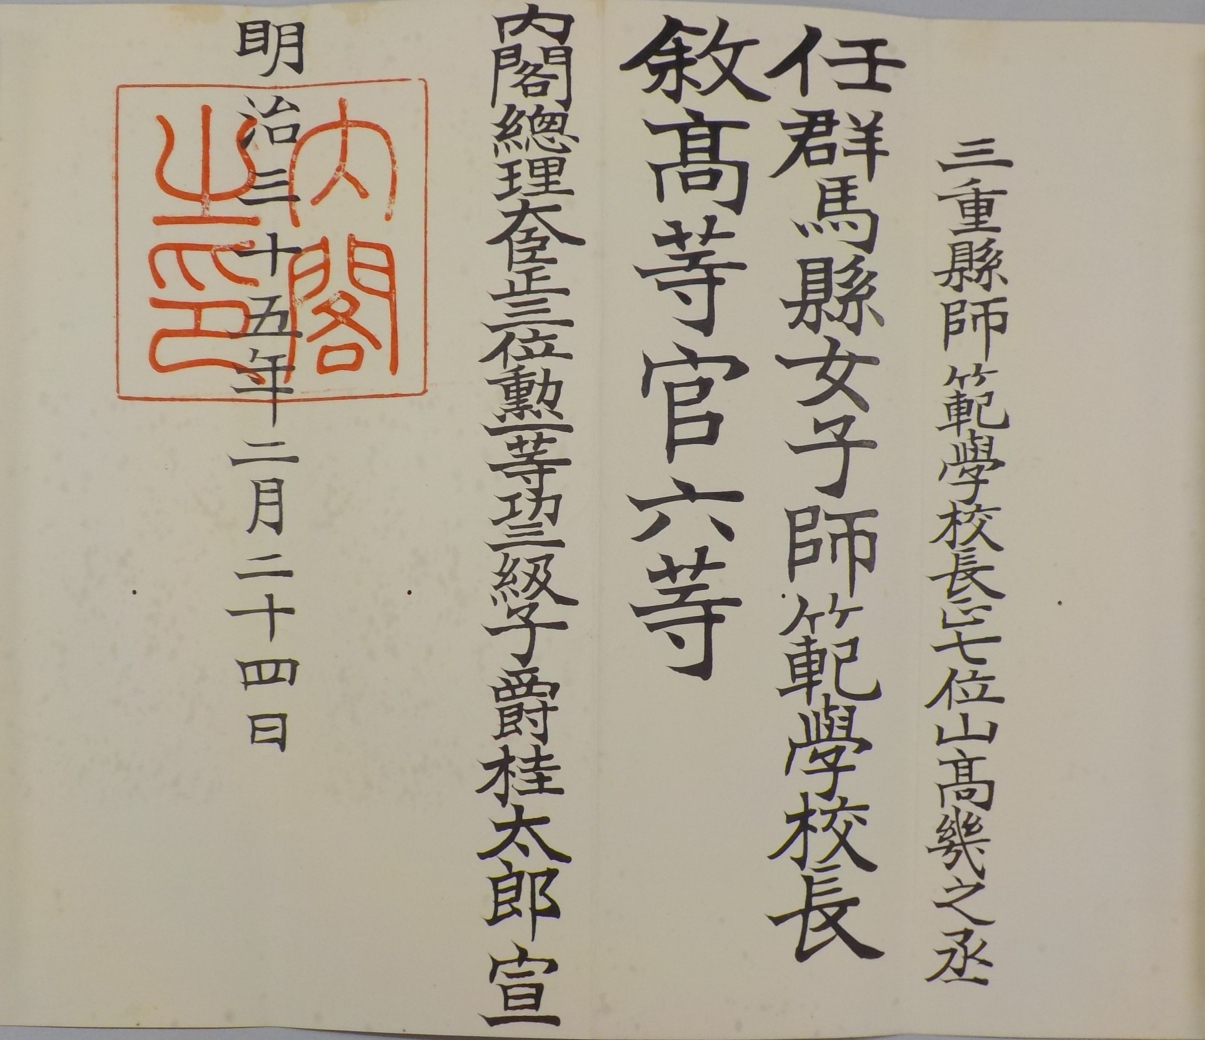 三重縣師範學校長正七位山髙幾之丞
任群馬縣女子師範學校長
敘髙等官六等
内閣總理大臣正三位勲一等功三級子爵桂太郎宣
明治三十五年二月二十四日
内閣之印